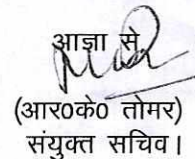 आज्ञा से
(आर०के० तोमर)
संयुक्त सचिव।